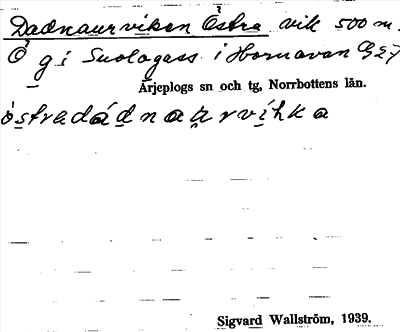 Dadnaurviken Östra vik 500 m.
Ö g i Suologass i Hornavan G27
Arjeplogs sn och tg, Norrbottens län.
östradádnaurvíhka
Sigvard Wallström, 1939.